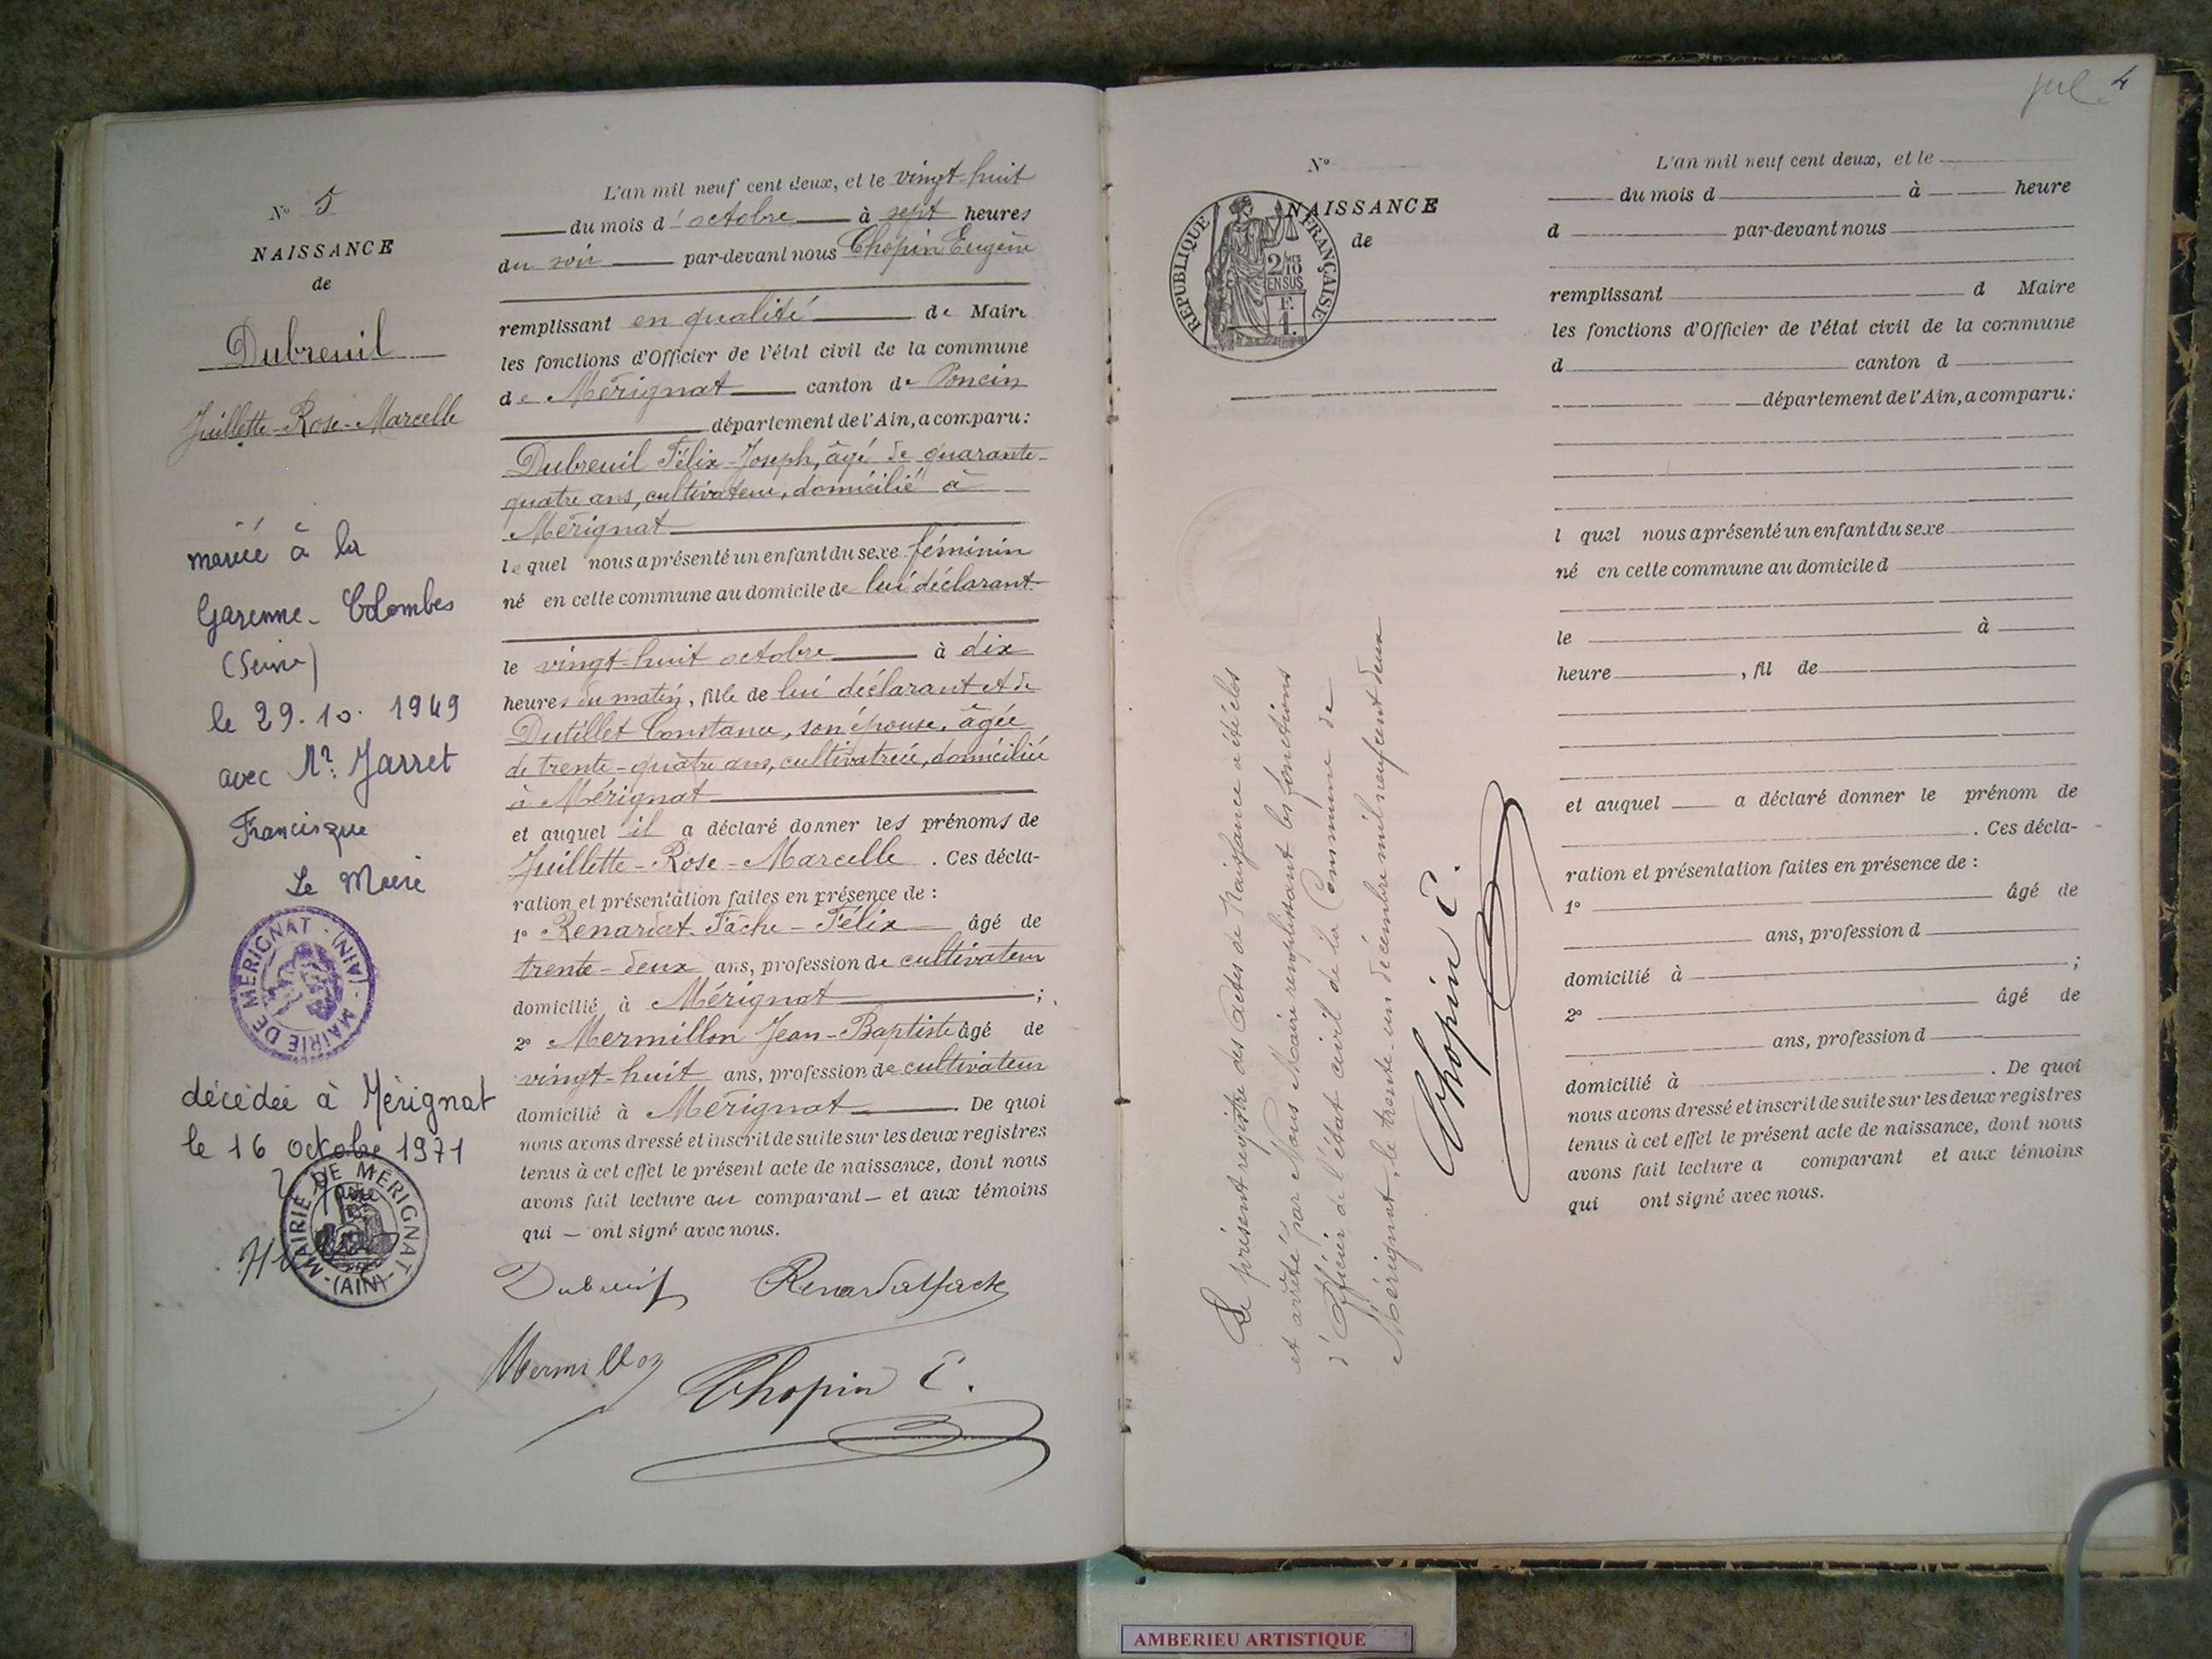 N° 5
NAISSANCE
de
Dubreuil
Juillette-Rose-Marcelle
mariée à la
Garenne-Colombes
(Seine)
le 29.10.1949
avec Mr. Jarret
Francisque
Le Maire
MAIRIE DE MÉRIGNAT - (AIN)
décédée à Mérignat
le 16 octobre 1971
MAIRIE DE MÉRIGNAT
(AIN)
L'an mil neuf cent deux, et le vingt-huit
du mois d'octobre à sept heures
du soir par-devant nous Chopin Eugène
remplissant en qualité de Maire
les fonctions d'Officier de l'état civil de la commune
de Mérignat canton de Poncin
département de l'Ain, a comparu :
Dubreuil Félix-Joseph, âgé de quarante-
quatre ans, cultivateur, domicilié à
Mérignat
lequel nous a présenté un enfant du sexe féminin
né en cette commune au domicile de lui déclarant
le vingt-huit octobre à dix
heures du matin, fille de lui déclarant et de
Dutillet Constance, son épouse, âgée
de trente-quatre ans, cultivatrice, domiciliée
à Mérignat
et auquel il a déclaré donner les prénoms de
Juillette-Rose-Marcelle. Ces décla-
ration et présentation faites en présence de :
1° Renardat-Fâche-Félix âgé de
trente-deux ans, profession de cultivateur
domicilié à Mérignat ;
2° Mermillon Jean-Baptiste âgé de
vingt-huit ans, profession de cultivateur
domicilié à Mérignat. De quoi
nous avons dressé et inscrit de suite sur les deux registres
tenus à cet effet le présent acte de naissance, dont nous
avons fait lecture au comparant - et aux témoins
qui - ont signé avec nous.
Dubreuil Renardatfache
Mermillon Chopin E.
4
N°
NAISSANCE
de
RÉPUBLIQUE FRANÇAISE
2/10 EN SUS
F.
1.
Le présent registre des Actes de Naissance a été clos
et arrêté par Nous Maire remplissant les fonctions
d'Officier de l'état civil de la Commune de
Mérignat, le trente-un décembre mil neuf cent deux
Chopin E.
L'an mil neuf cent deux, et le
du mois d à heure
d par-devant nous
remplissant d Maire
les fonctions d'Officier de l'état civil de la commune
d canton d
département de l'Ain, a comparu :
l quel nous a présenté un enfant du sexe
né en cette commune au domicile d
le à
heure , fil de
et auquel a déclaré donner le prénom de
. Ces décla-
ration et présentation faites en présence de :
1° âgé de
ans, profession d
domicilié à ;
2° âgé de
ans, profession d
domicilié à . De quoi
nous avons dressé et inscrit de suite sur les deux registres
tenus à cet effet le présent acte de naissance, dont nous
avons fait lecture a comparant et aux témoins
qui ont signé avec nous.
AMBERIEU ARTISTIQUE